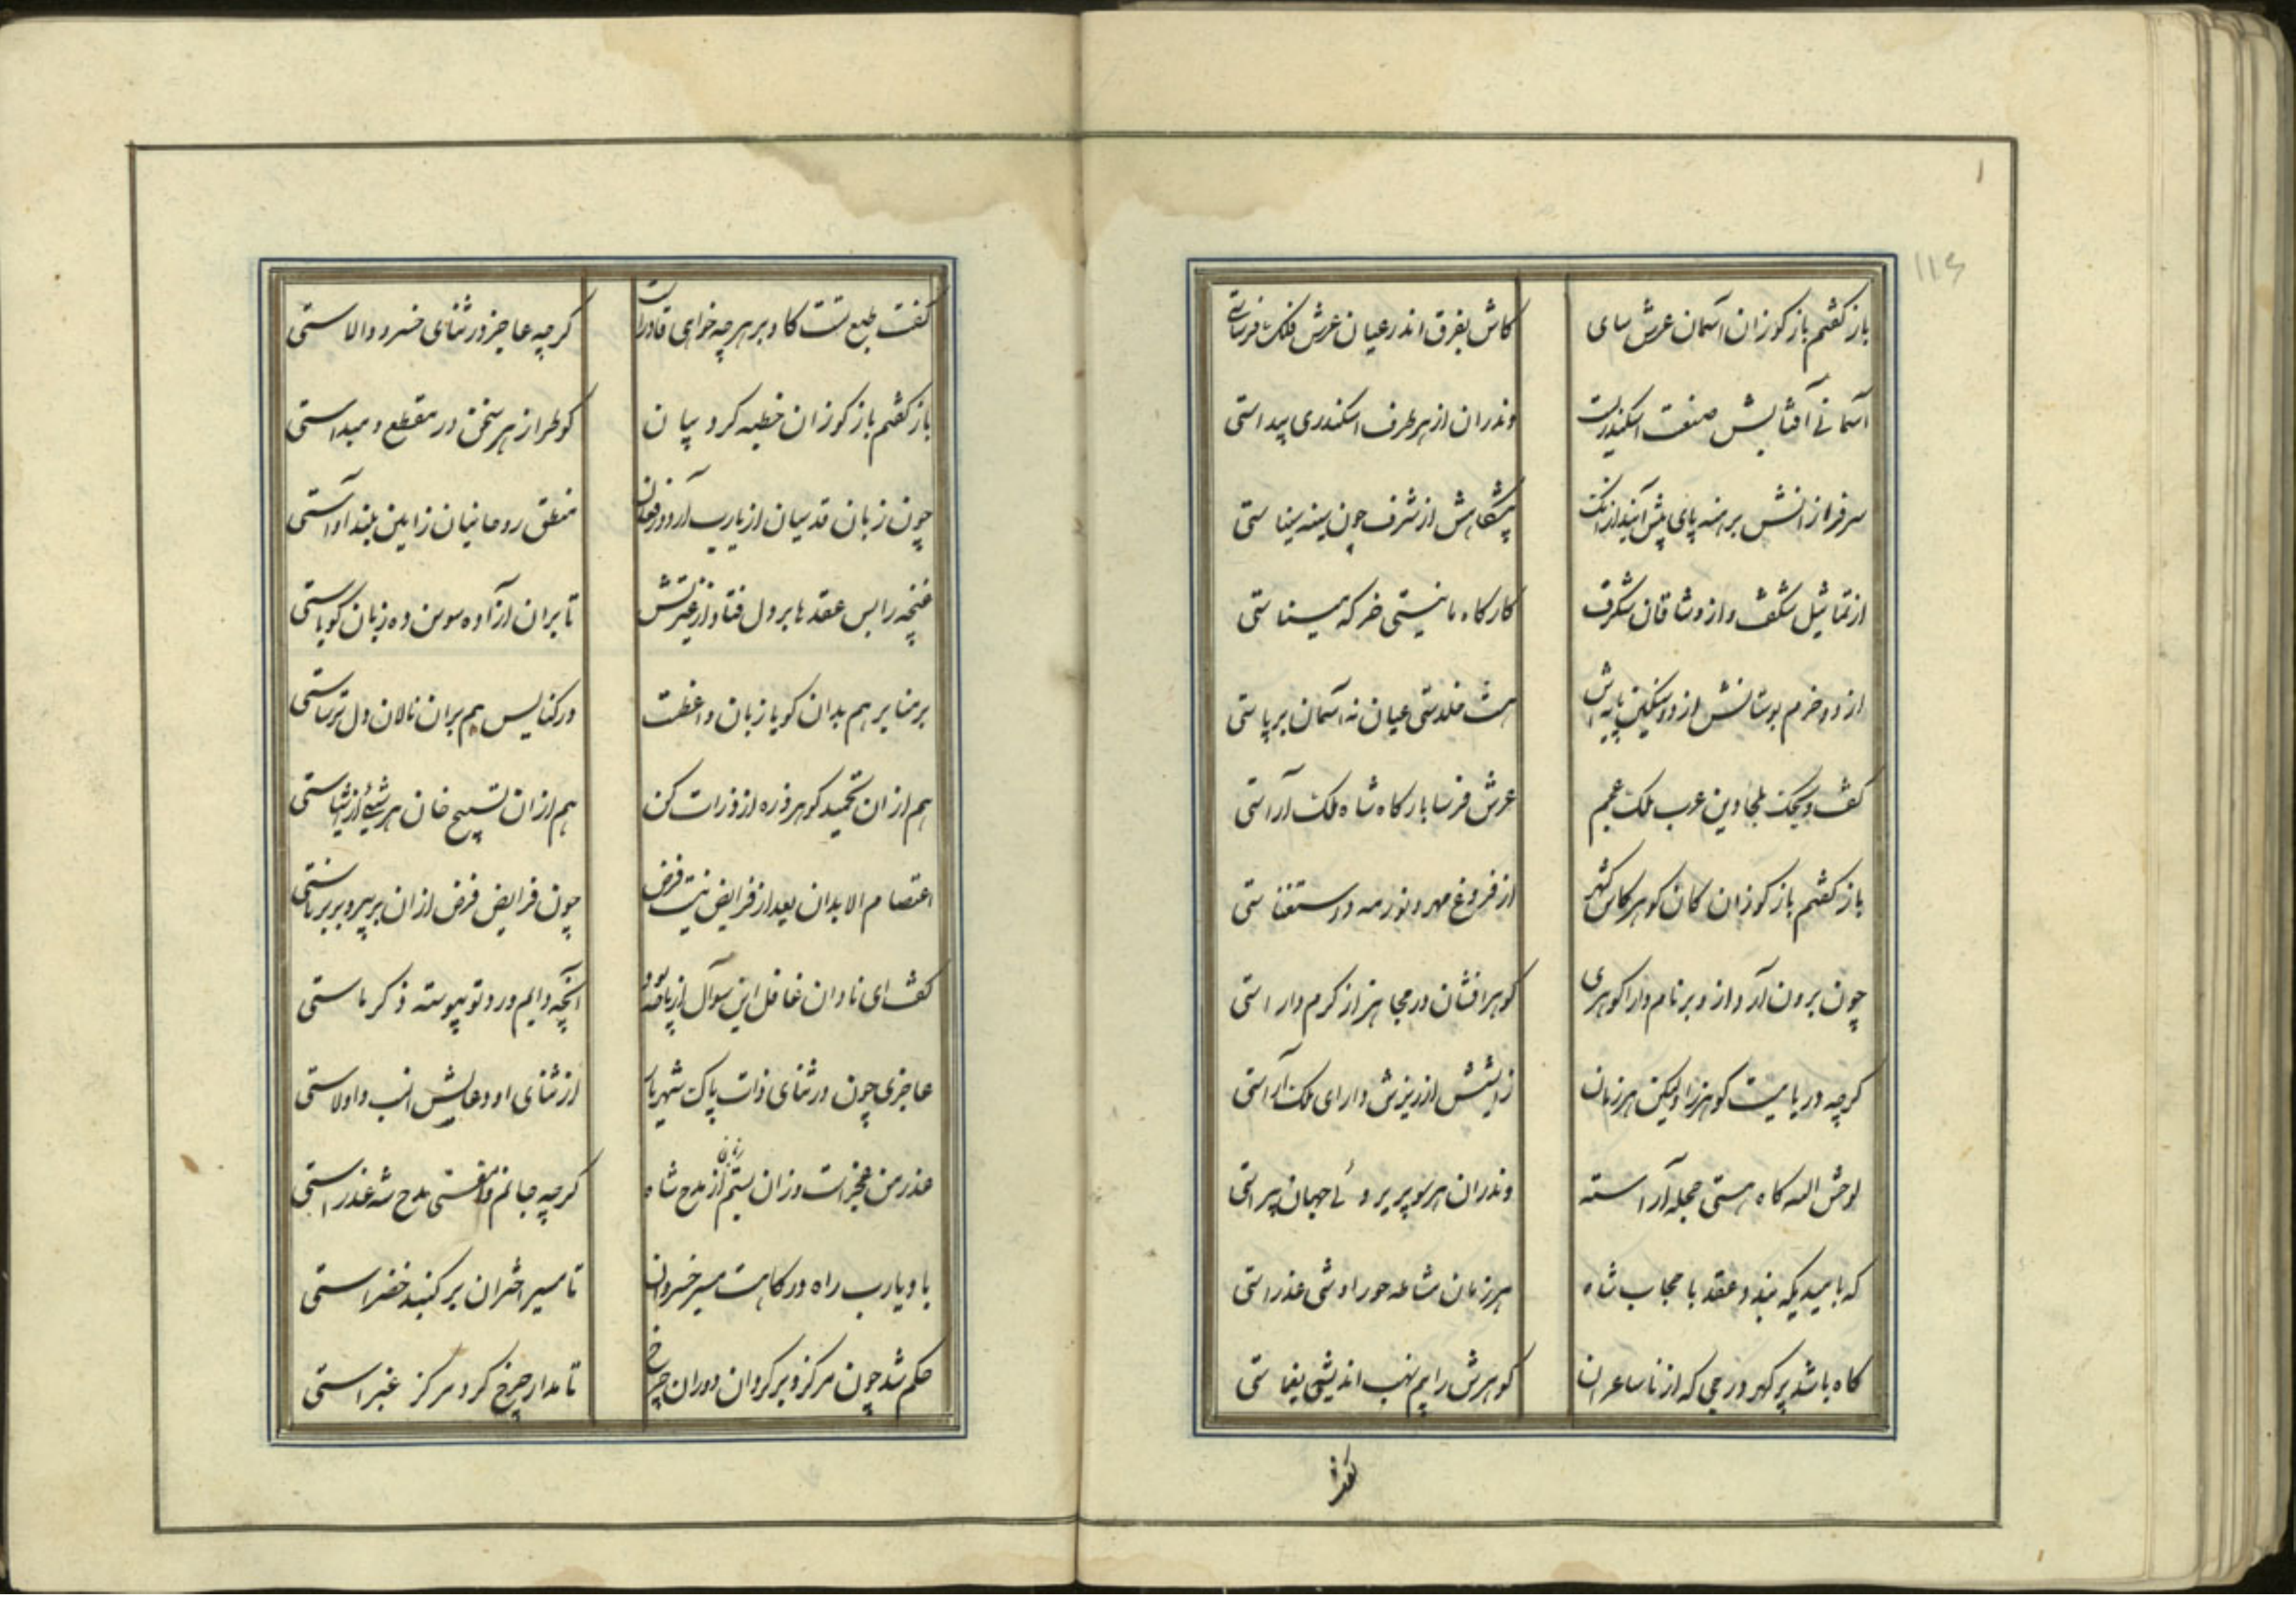 ۱
۱۱۶
باز گفتم باز گو زان آسمان عرش سای
کاش بفرق اندر عیان عرش فلک فرساستی
آسمانی آفتابش صنعت اسکندرست
وندران از هر طرف اسکندری پیداستی
سر فرازانش برهنه پای پیش آیند از آنک
پیشگاهش از شرف چون سینه سیناستی
از تماثیل شگفت و از وشاقان شگرف
کارگاه مانیستی خرگه میناستی
از دو خرم بوستانش از دو سنگین پایه اش
هشت خلدستی عیان نه آسمان برپاستی
گفت ویحک ملجاء دین عرب ملک عجم
عرش فرسا بارگاه شاه ملک آراستی
باز گفتم باز گو زان کان گوهر کاش گهر
از فروغ مهر و نور مه در استغناستی
چون برون آرد از و بر نام دارا گوهری
گوهر افشان در مجاهز از کرم داراستی
گرچه دریاییست گوهرزا ولیکن هر زمان
زایشش از ریزش دارای ملک آراستی
لوحش الله گاه هستی حجله آراسته
وندران هر سو پریروئی جهان پیراستی
که بامیدیکه بندد عقد با حجاب شاه
هر زمان مشاطه حورا وشی عذراستی
گاه باشد پر گهر درجی که از ناساعران
گوهرش را بیم نهب اندیشه یغماستی
گفت
گفت طبع تست کاو بر هر چه خواهی قادرست
گرچه عاجز در ثنای خسرو والاستی
باز گفتم باز گو زان خطبه گردد بیان
کو طراز هر سخن در مقطع و مبداستی
چون زبان قدسیان از یارب آرد در فغان
منطق روحانیان زامین بلند آواستی
غنچه را بس عقدها بر دل فتاد از غیرتش
تا بران آزاده سوسن ده زبان گویاستی
بر منابر هم بدان گویا زبان واعظت
در کنایس هم بران نالان دل ترساستی
هم ازان تحمید گو هر ذره از ذرات کن
هم ازان تسبیح خان هر شیئی از اشیاستی
اعتصام الا بدان بعد از فرایض نیست فرض
چون فرایض فرض ازان بر پیر و بر برناستی
گفت ای نادان غافل این سوآل از بهر چه بود
آنچه دایم ورد تو پیوسته ذکر ماستی
عاجزی چون در ثنای ذات پاک شهریار
از ثنای او دعایش انسب و اولاستی
عذر من عجزاست و زان بستم زبان از مدح شاه
گرچه جانم وامقستی مدح شه عذراستی
باد یارب راه درگاهت مسیر خسروان
تا مسیر اختران بر گنبد خضراستی
حکم شد چون مرکز و بر گرد آن دوران چرخ
تا مدار چرخ گرد مرکز غبراستی